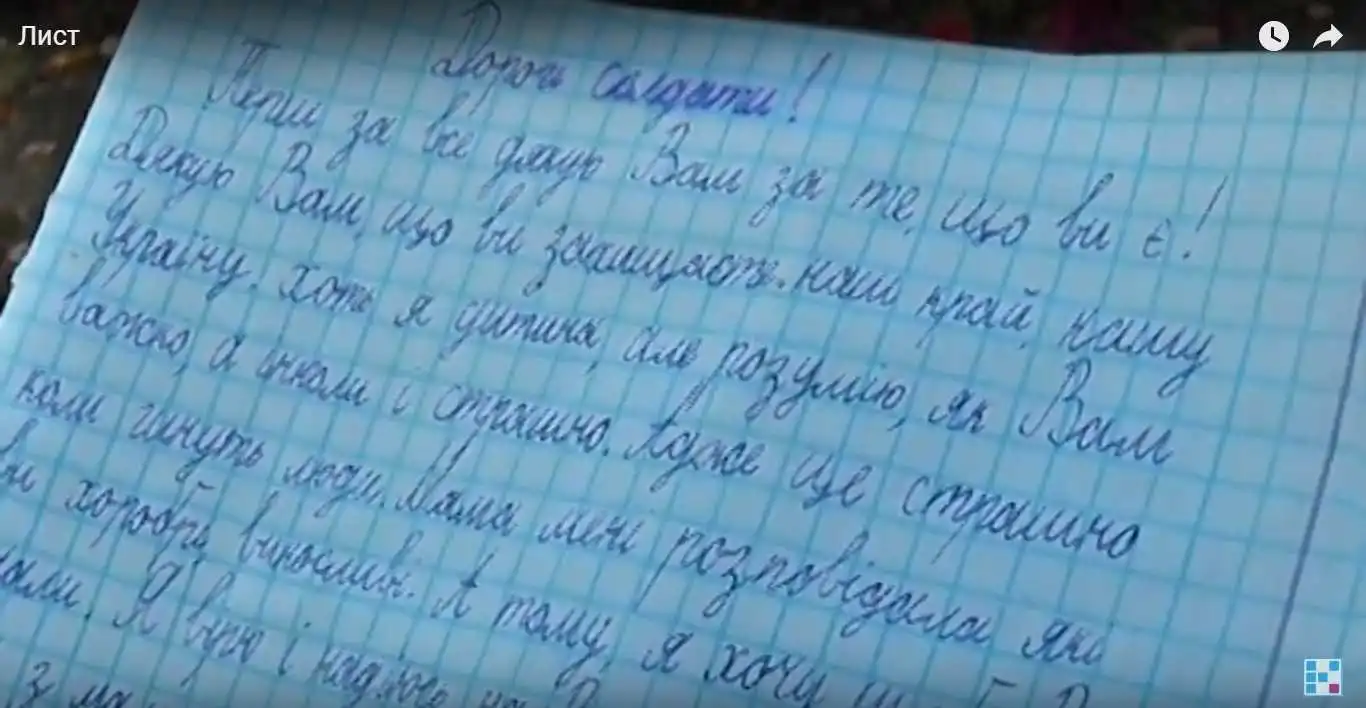 Лист
Дорогі солдати!
Перш за все дякую Вам за те, що ви є!
Дякую Вам, що ви захищаєте наш край, нашу
Україну. Хоть я дитина, але розумію, як Вам
важко, а інколи і страшно. Адже це страшно
коли гинуть люди. Мама мені розповідала які
ви хоробрі, виносливі. А тому, я хочу
Я вірю і надіюсь на
з